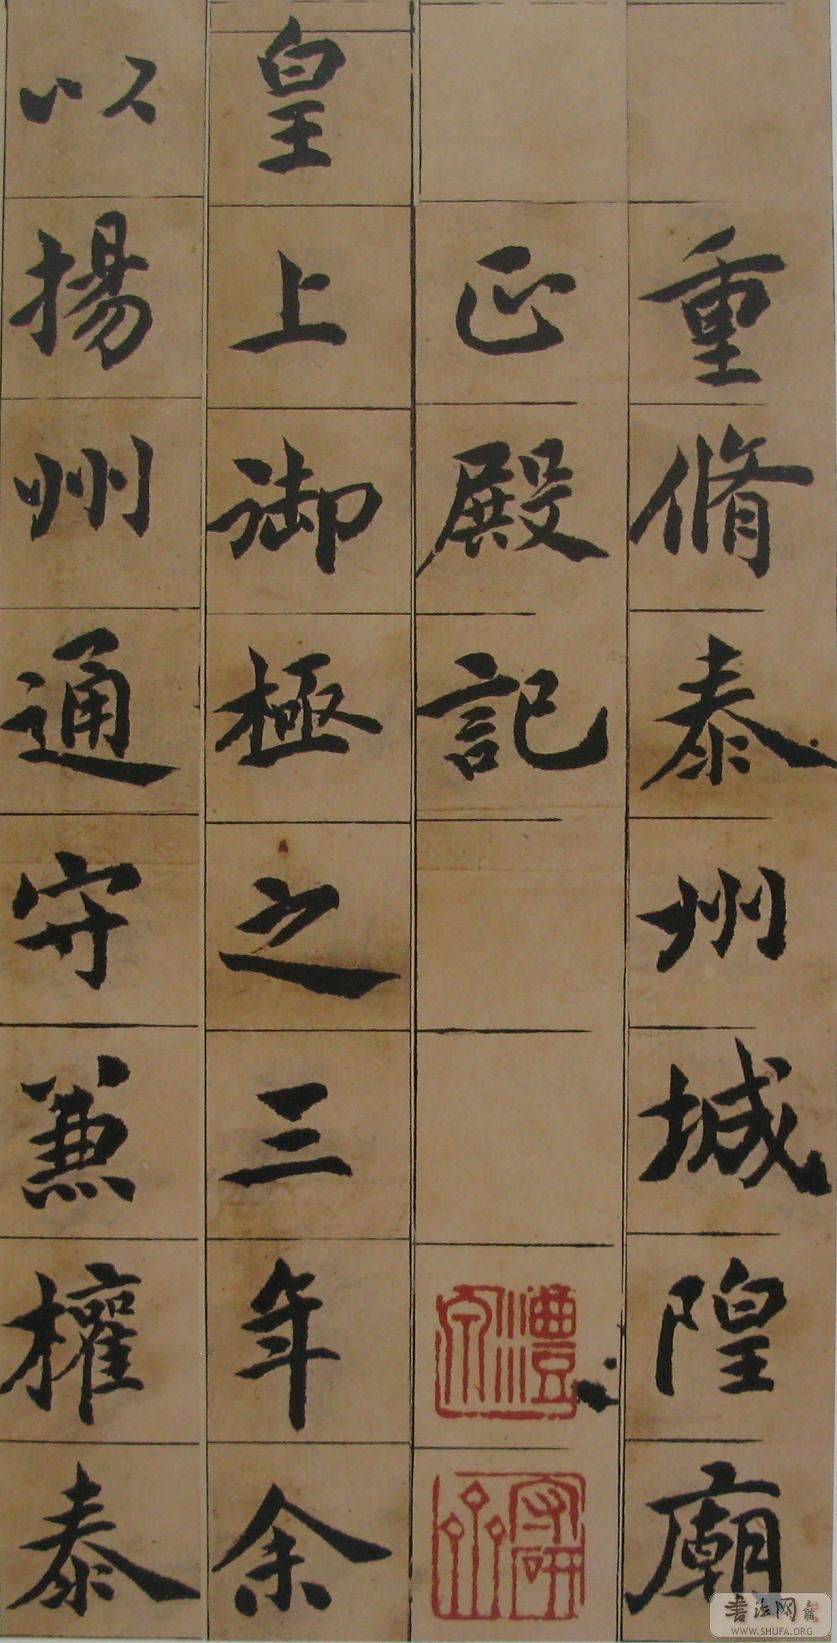 重脩泰州城隍廟
正殿記
皇上御極之三年余
以揚州通守兼權泰
書法网
WWW.SHUFA.ORG